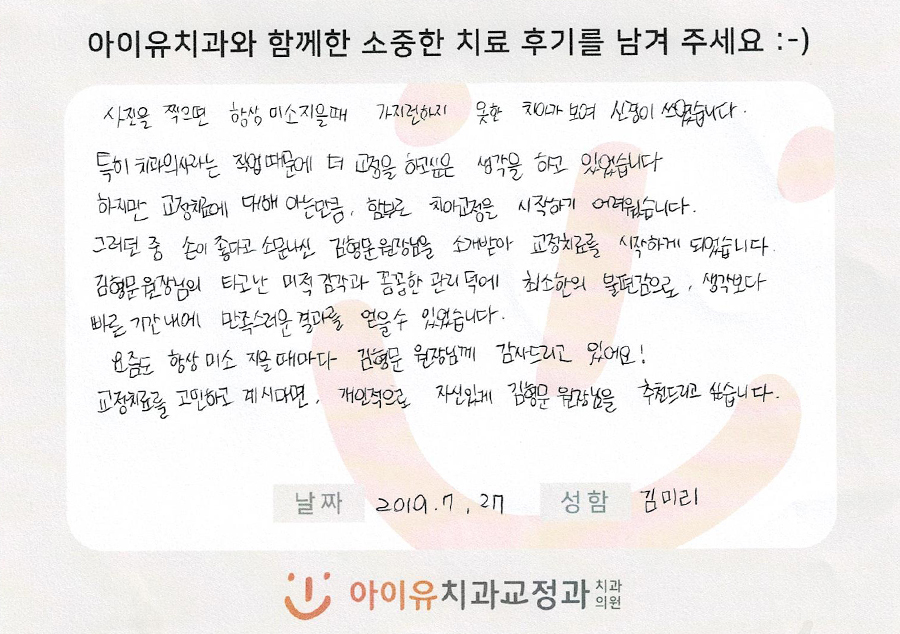 아이유치과와 함께한 소중한 치료 후기를 남겨 주세요 :-)
사진을 찍으면 항상 미소지을때 가지런하지 못한 치아가 보여 신경이 쓰였습니다.
특히 치과의사라는 직업때문에 더 교정을 하고싶은 생각을 하고 있었습니다
하지만 교정치료에 대해 아는만큼, 함부로 치아교정을 시작하기 어려웠습니다.
그러던 중 손이 좋다고 소문나신 김형문 원장님을 소개받아 교정치료를 시작하게 되었습니다.
김형문 원장님의 타고난 미적 감각과 꼼꼼한 관리 덕에 최소한의 불편감으로, 생각보다
빠른 기간내에 만족스러운 결과를 얻을수 있었습니다.
요즘도 항상 미소 지을때마다 김형문 원장님께 감사드리고 있어요!
교정치료를 고민하고 계시다면, 개인적으로 자신있게 김형문 원장님을 추천드리고 싶습니다.
날짜 2019.7.27 성함 김미리
아이유치과교정과 치과
의원